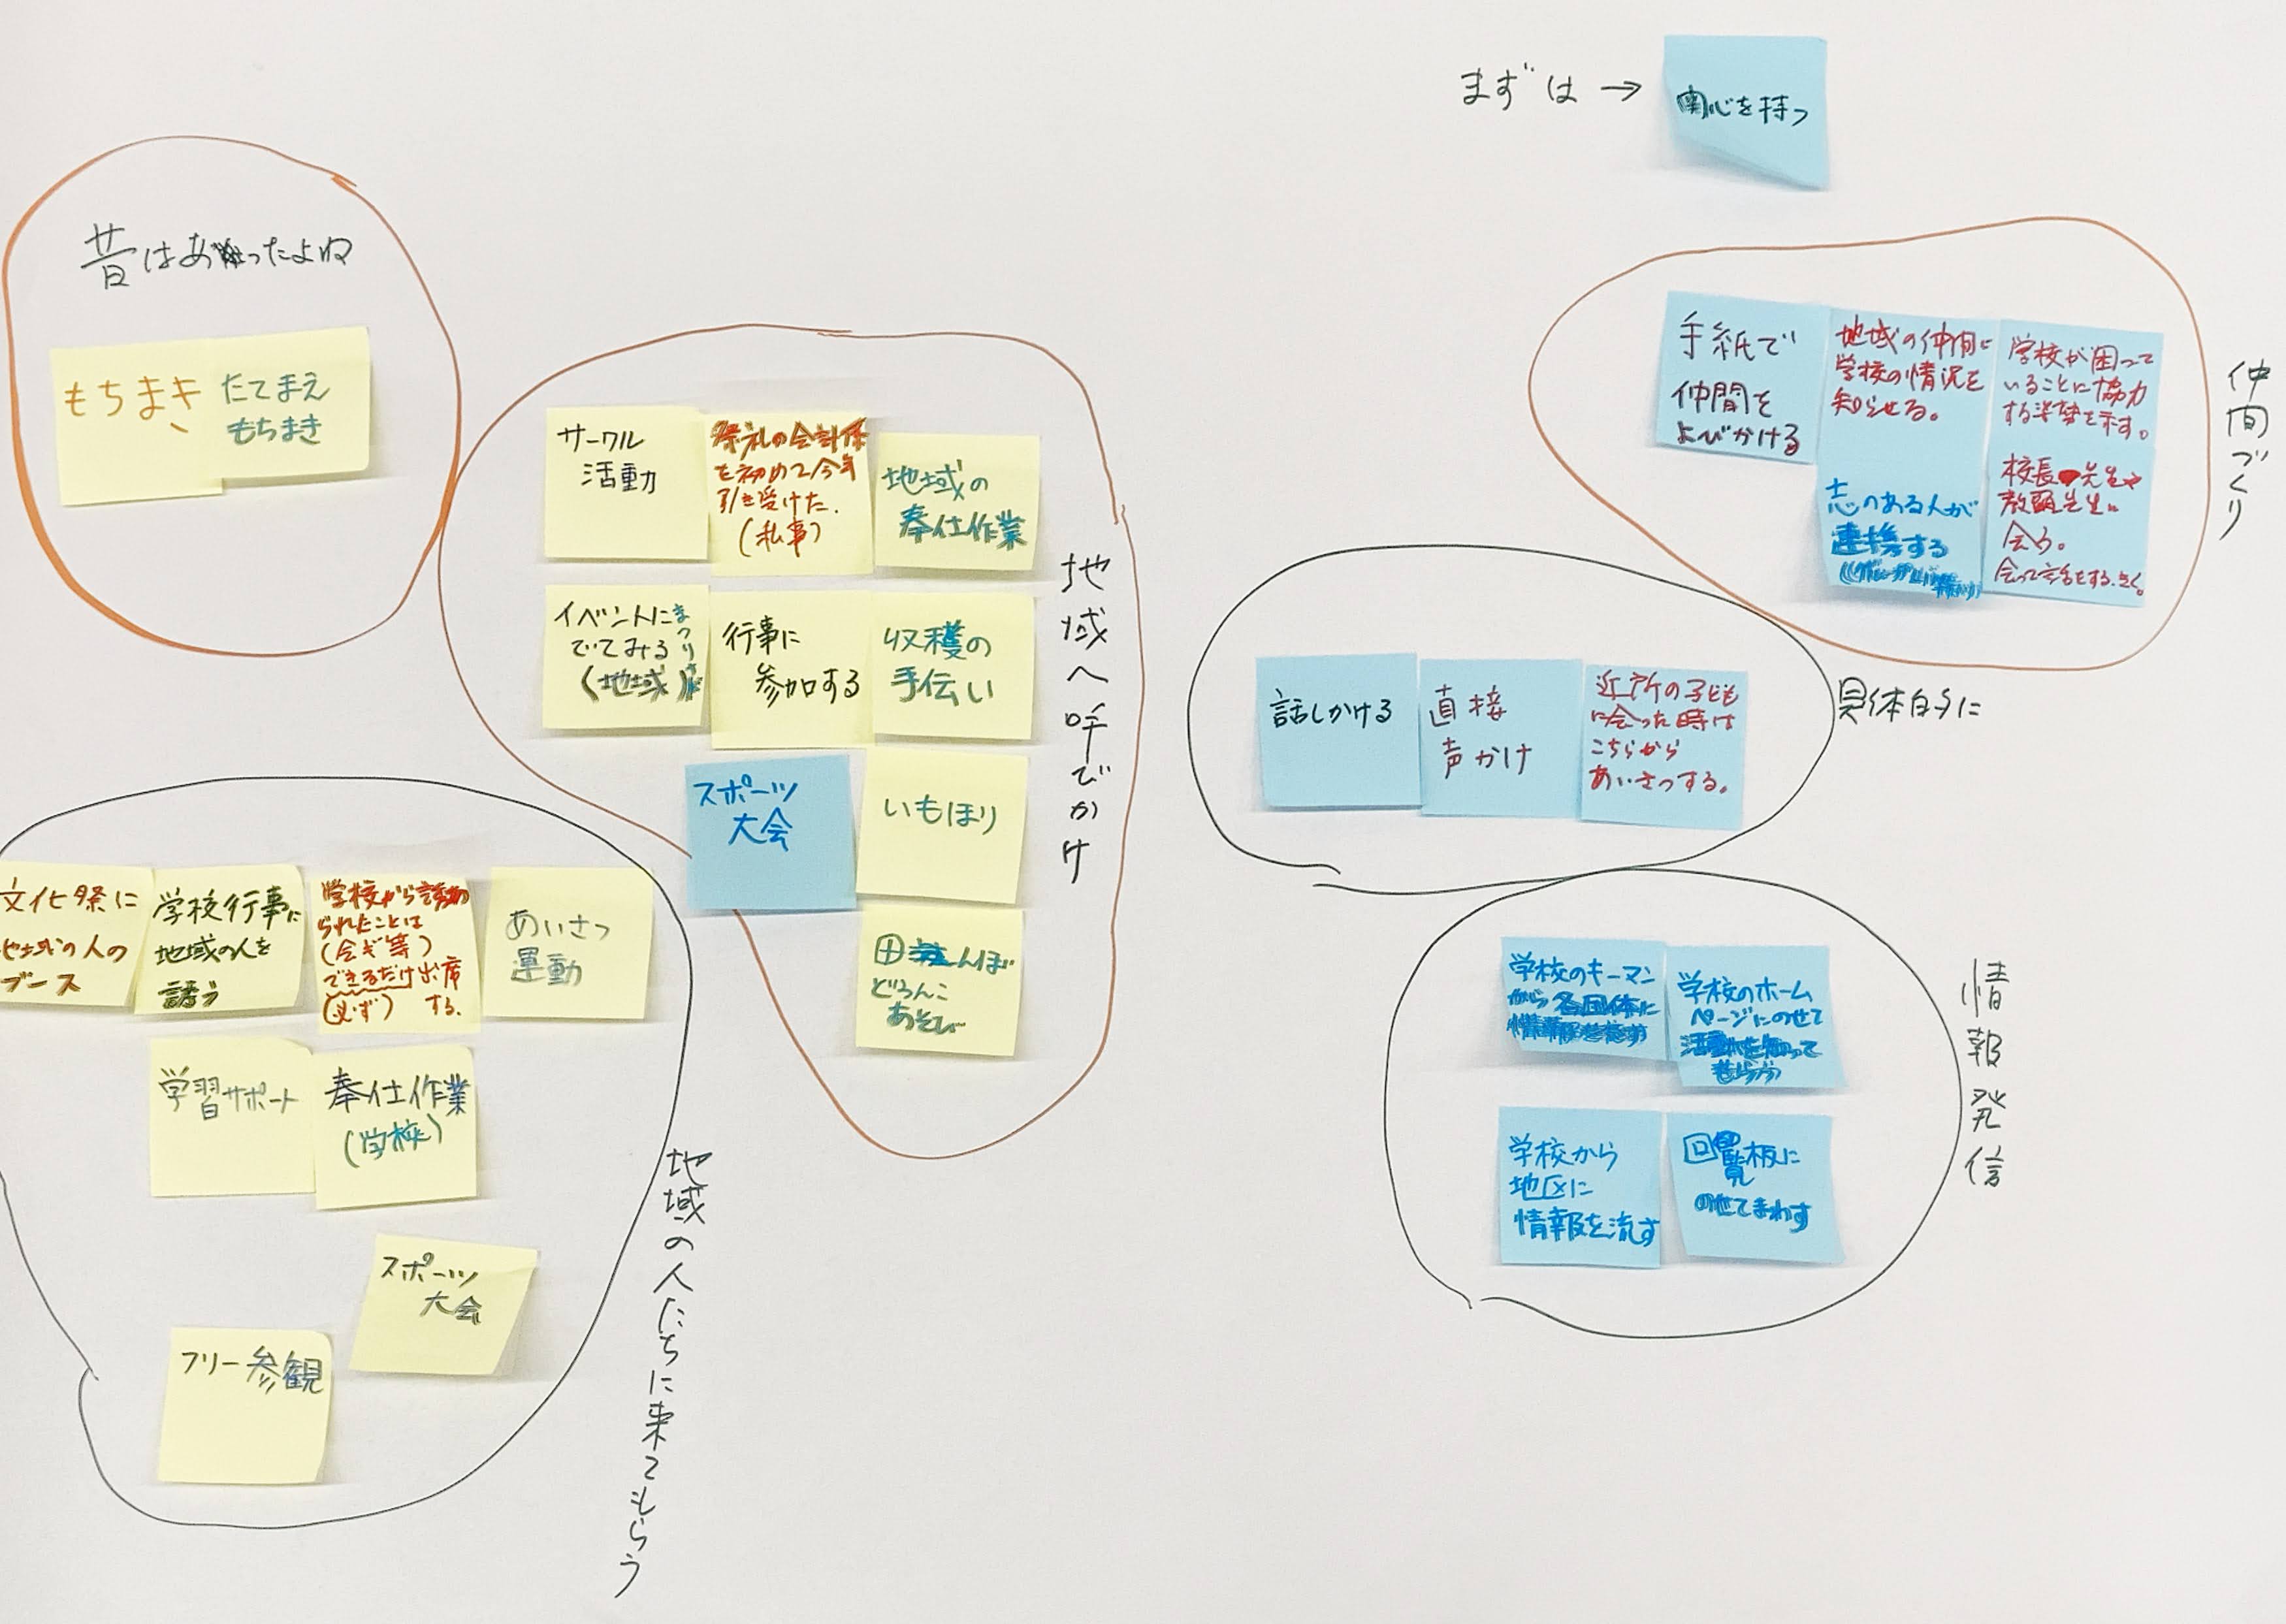 まずは→
関心を持つ
昔はあったよね
もちまき
たてまえ
もちまき
サークル
活動
祭礼の会計係
を初めて今年
引き受けた.
(私事)
地域の
奉仕作業
イベントに
でてみる
(地域)
行事に
参加する
収穫の
手伝い
スポーツ
大会
いもほり
田んぼ
どろんこ
あそび
地域へ呼びかけ
文化祭に
地域の人の
ブース
学校行事に
地域の人を
誘う
学校から誘め
られたことは
(会ギ等)
できるだけ出席
(必ず) する.
あいさつ
運動
学習サポート
奉仕作業
(学校)
スポーツ
大会
フリー参観
地域の人たちに来てもらう
手紙で
仲間を
よびかける
地域の仲間に
学校の情況を
知らせる。
学校が困って
いることに協力
する姿勢を示す。
志のある人が
連携する
校長先生や
教頭先生に
会う。
仲間づくり
話しかける
直接
声かけ
近所の子ども
に会った時は
こちらから
あいさつする。
具体的に
学校のキーマン
から各団体に
学校のホーム
ページにのせて
活動を知って
もらう
学校から
地区に
情報を流す
回覧板に
のせてまわす
情報発信